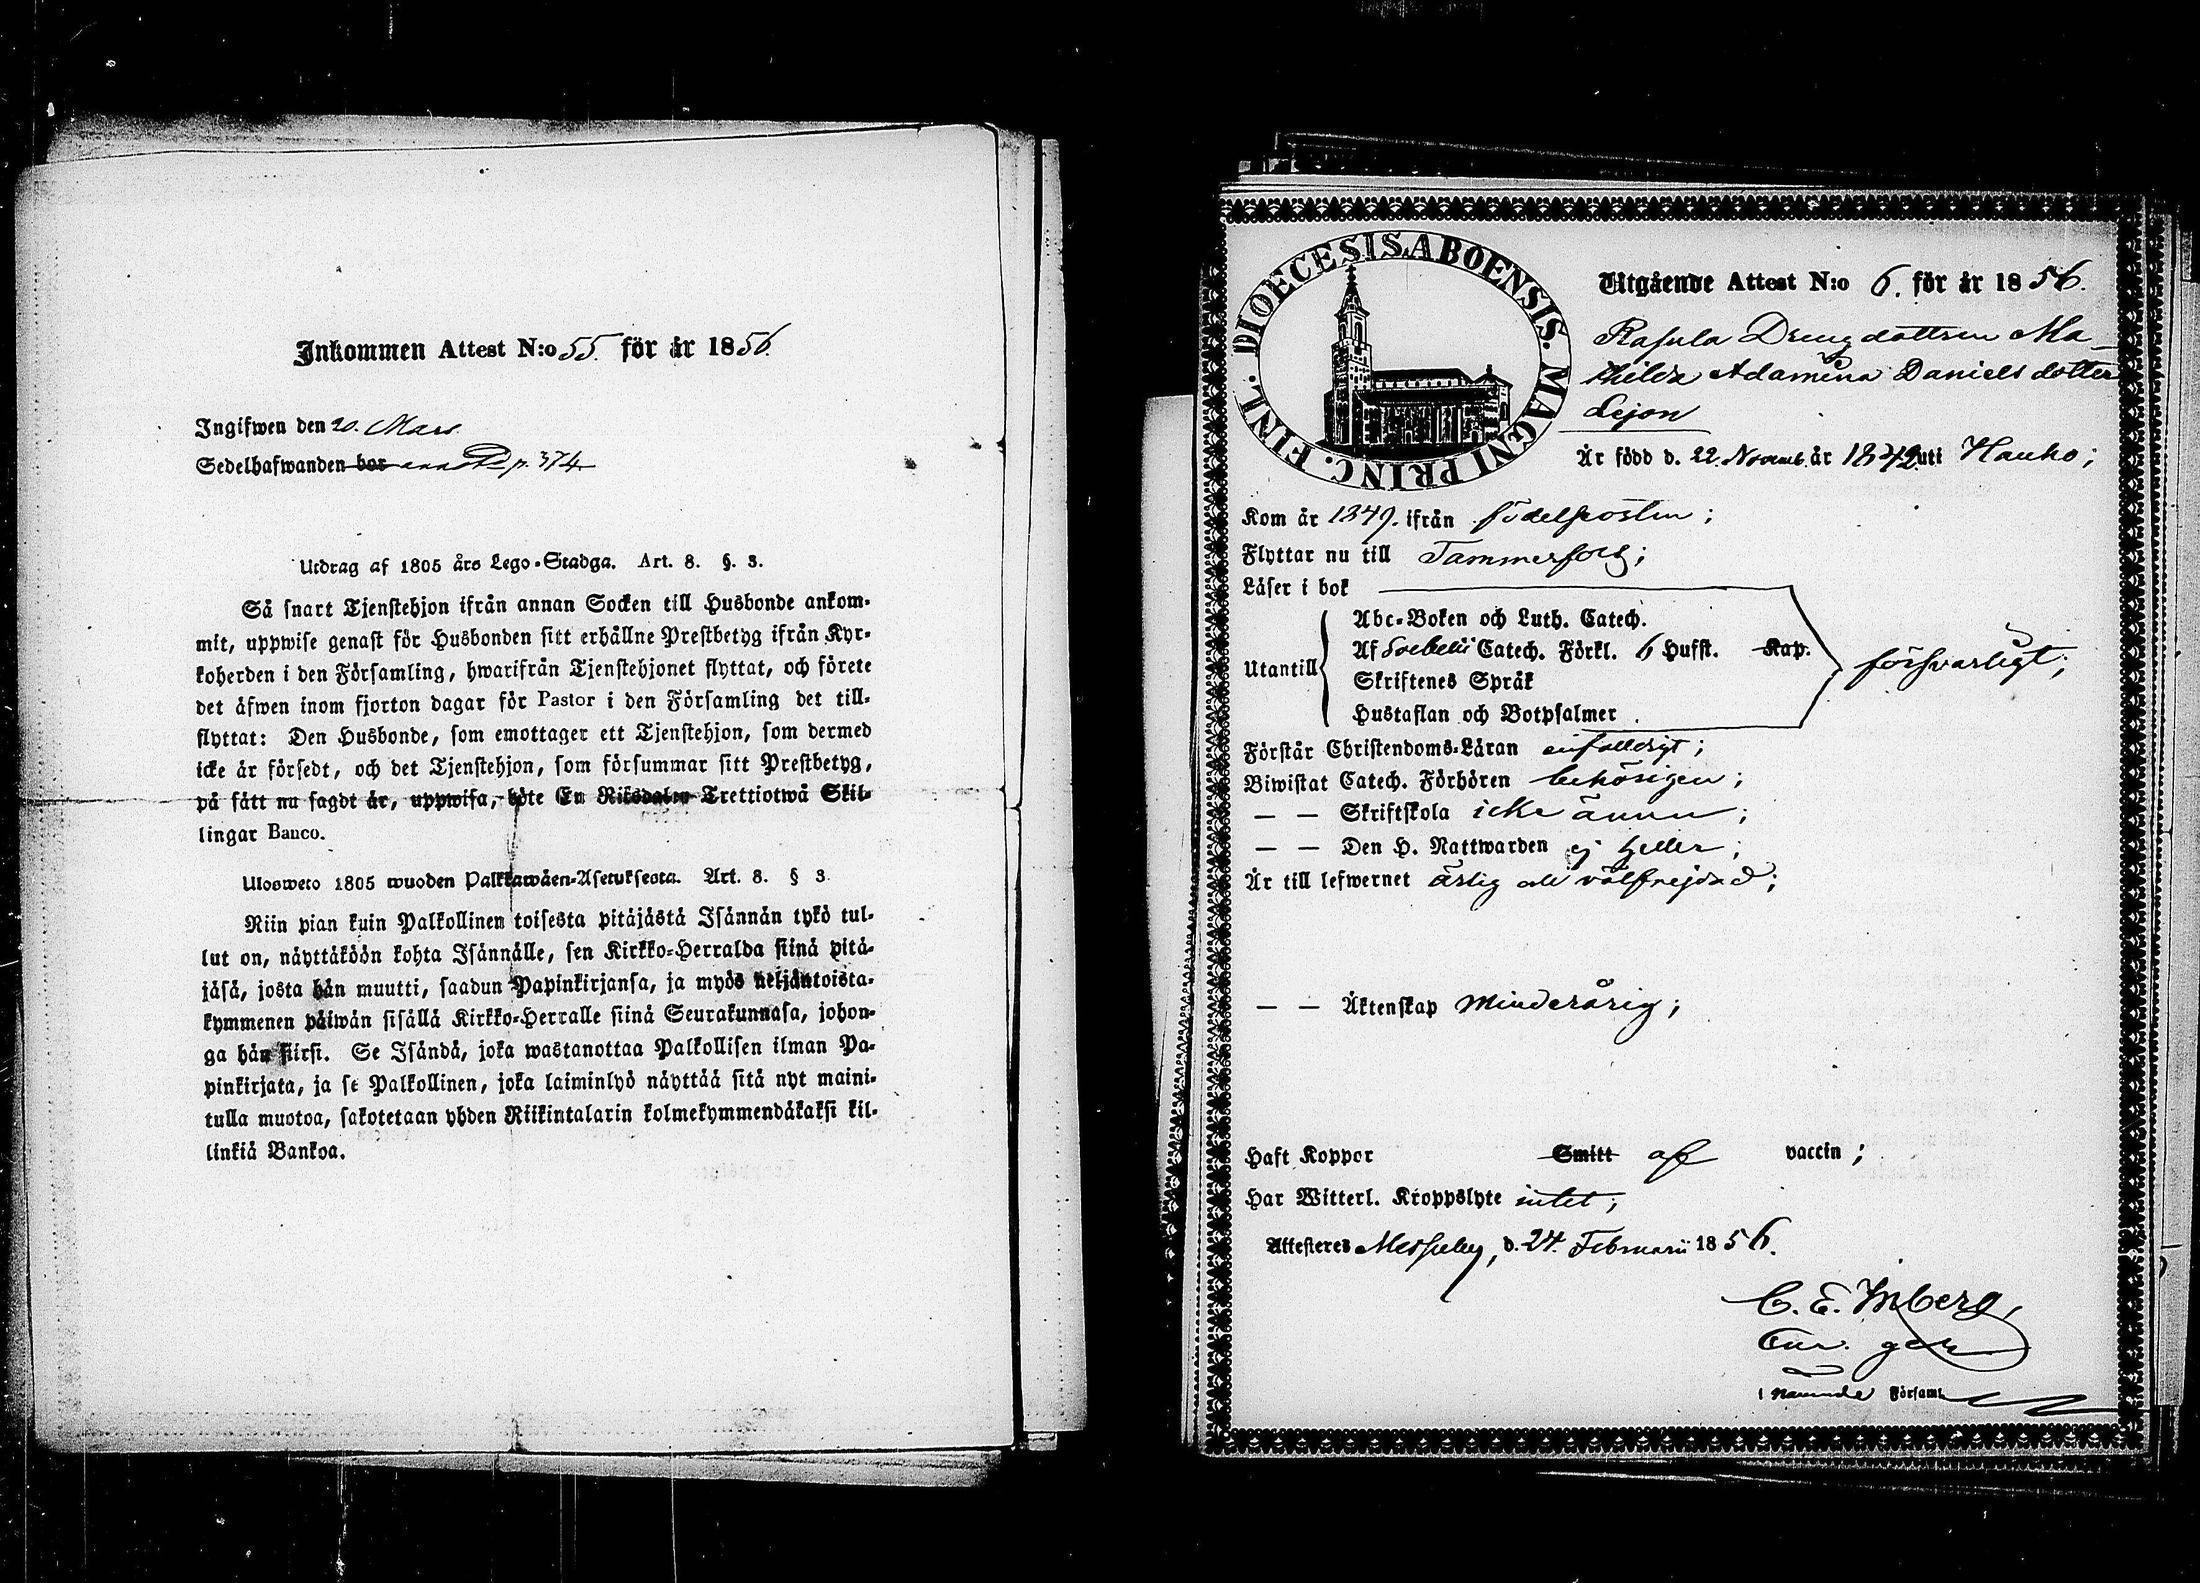 Inkommen Attest N:o 55. för år 1856.
Ingifwen den 20. Mars.
Sedelhafwanden bor p. 374
Utdrag af 1805 års Lego-Stadga. Art. 8. §. 3.
Så snart Tjenstehjon ifrån annan Socken till Husbonde ankom-
mit, uppwise genast för Husbonden sitt erhållne Prestbetyg ifrån Kyr-
koherden i den Församling, hwarifrån Tjenstehjonet flyttat, och förete
det äfwen inom fjorton dagar för Pastor i den Församling det till-
flyttat: Den Husbonde, som emottager ett Tjenstehjon, som dermed
icke är försedt, och det Tjenstehjon, som försummar sitt Prestbetyg,
på sätt nu sagdt är, uppwisa, böte En Riksdaler Trettiotwå Skil-
lingar Banco.
Ulosweto 1805 wuoden Palkkawäen-Asetuksesta. Art. 8. § 3.
Niin pian kuin Palkollinen toisesta pitäjästä Isännän tykö tul-
lut on, näyttäköön kohta Isännälle, sen Kirkko-Herralda siinä pitä-
jäsä, josta hän muutti, saadun Papinkirjansa, ja myös neljäntoista-
kymmenen päiwän sisällä Kirkko-Herralle siinä Seurakunnasa, johon-
ga hän siirsi. Se Isändä, joka wastanottaa Palkollisen ilman Pa-
pinkirjata, ja se Palkollinen, joka laiminlyö näyttää sitä nyt maini-
tulla muotoa, sakotetaan yhden Riikintalarin kolmekymmendäkaksi kil-
linkiä Bankoa.
DIOECESIS ABOENSIS. MAGNI PRINC. FINL.
Utgående Attest N:o 6. för år 1856.
Dreng dottren Ma-
thilda Adamina Daniels dotter
Lejon
Är född d. 22. Novemb. år 1842. uti Hauho;
Kom år 1849. ifrån födelseorten;
Flyttar nu till Tammerfors;
Läser i bok
Utantill
Abc-Boken och Luth. Catech.
Af Svebelii Catech. Förkl. 6 Hufst. Kap.
Skriftenes Språk
Hustaflan och Botpsalmer
försvarligt;
Förstår Christendoms-Läran enfaldigt;
Biwistat Catech. Förhören behörigen;
— — Skriftskola icke ännu;
— — Den H. Nattwarden ej heller;
Är till lefwernet ärlig och välfrejdad;
— — Äktenskap Minderårig;
Haft Koppor Smitt af vaccin;
Har Witterl. Kroppslyte intet;
Attesteres Messuby, d. 24. Februarii 1856.
C. E. Inberg,
i nämnde Församl.